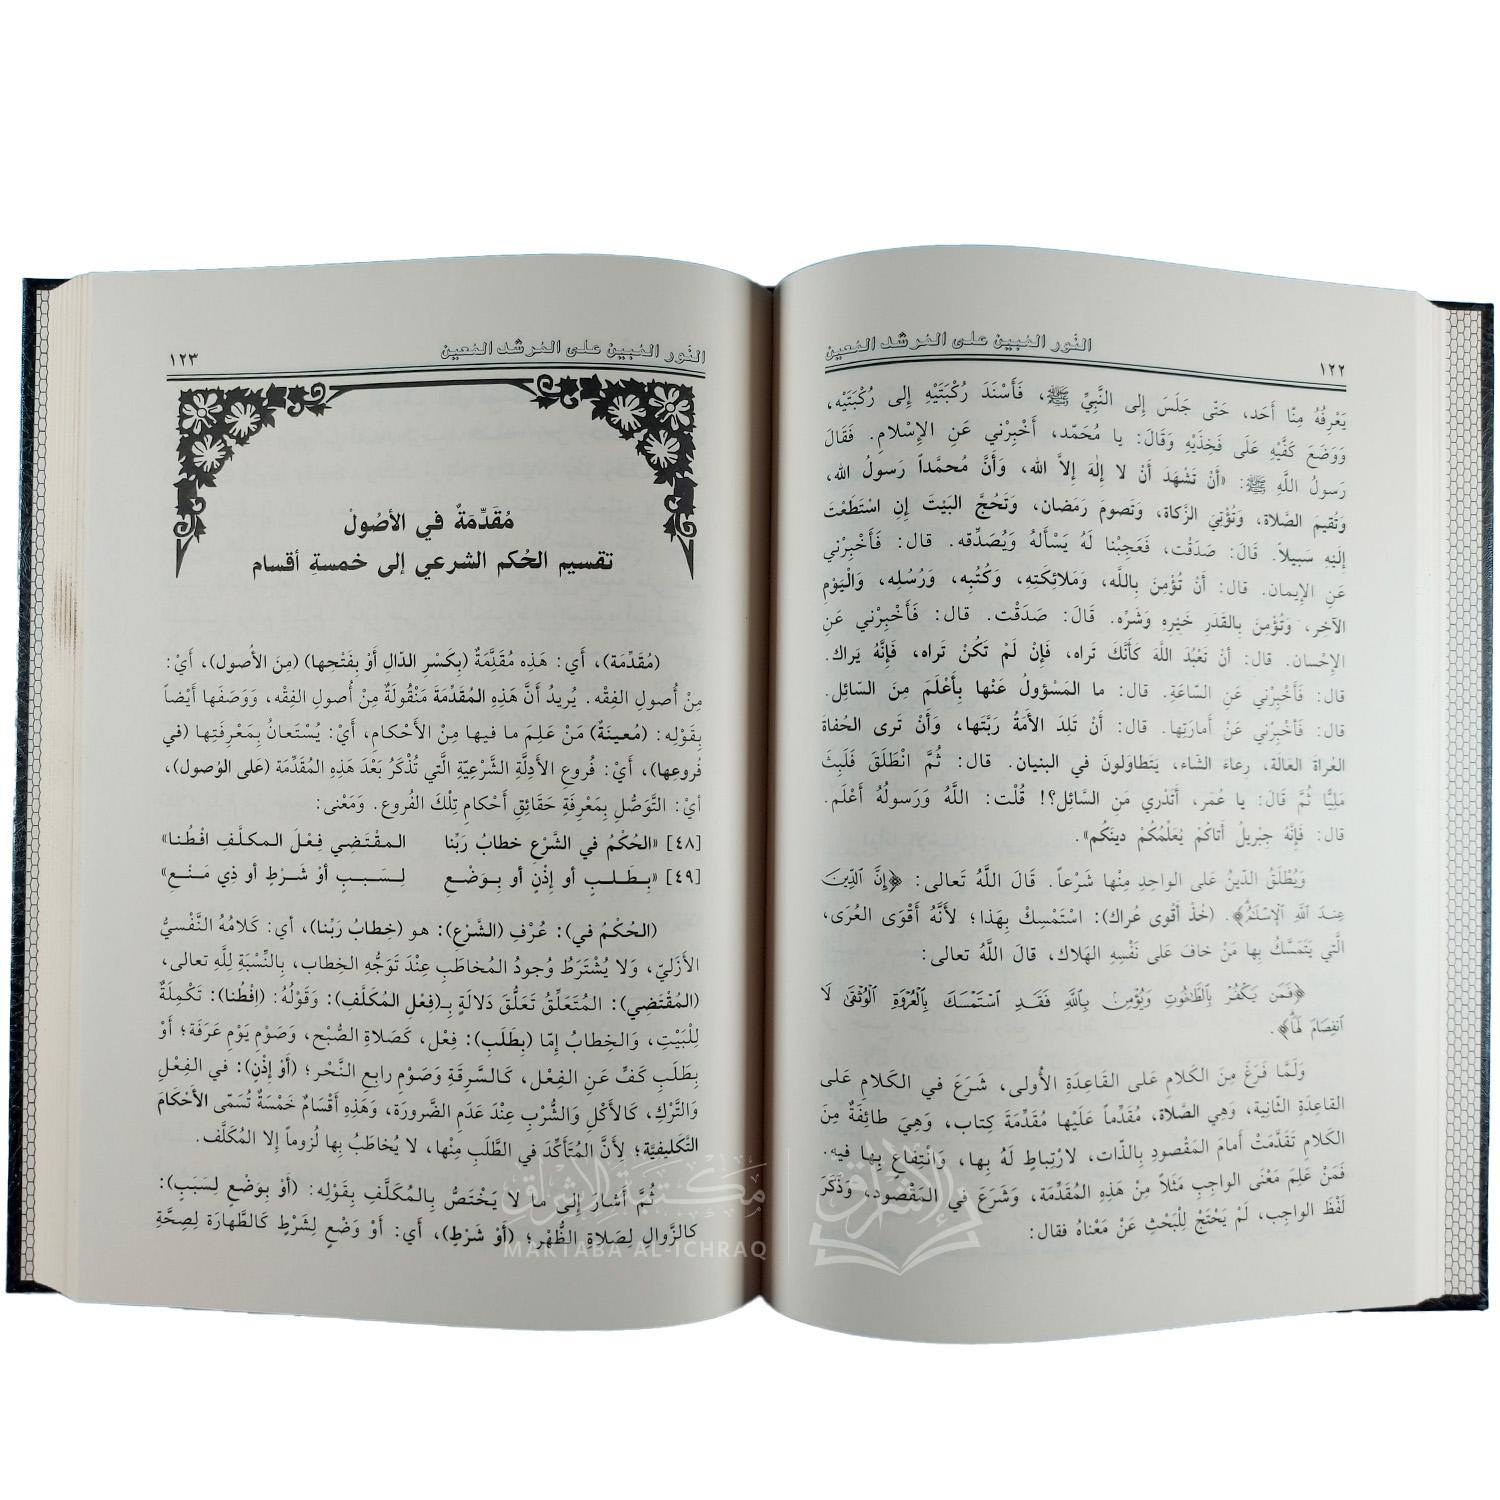 النور المبين على المرشد المعين
١٢٢
يَعْرِفُهُ مِنَّا أَحَد، حَتَّى جَلَسَ إِلى النَّبِيِّ ﷺ، فَأَسْنَدَ رُكْبَتَيْهِ إِلى رُكْبَتَيْه،
وَوَضَعَ كَفَّيْهِ عَلَى فَخِذَيْهِ وَقَالَ: يا مُحَمّد، أَخْبِرْني عَنِ الإِسْلام. فَقَالَ
رَسولُ اللَّهِ ﷺ: «أَنْ تَشْهَدَ أَنْ لا إِلٰهَ إِلاَّ الله، وَأَنَّ مُحمَّداً رَسولُ الله،
وَتُقيمَ الصَّلاة، وَتُؤْتِيَ الزَّكاة، وَتَصومَ رَمَضان، وَتَحُجَّ البَيْتَ إِنِ اسْتَطَعْتَ
إِلَيْهِ سَبيلاً. قَالَ: صَدَقْت، فَعَجِبْنا لَهُ يَسْأَلهُ وَيُصَدِّقه. قال: فَأَخْبِرْني
عَنِ الإِيمان. قال: أَنْ تُؤْمِنَ بِاللَّه، وَمَلائِكَتِهِ، وَكُتُبِه، وَرُسُلِه، وَالْيَوْمِ
الآخِر، وَتُؤْمِنَ بِالقَدَرِ خَيْرِه وَشَرِّه. قَالَ: صَدَقْت. قال: فَأَخْبِرْني عَنِ
الإِحْسان. قال: أنْ تَعْبُدَ اللَّهَ كَأَنَّكَ تَراه، فَإِنْ لَمْ تَكُنْ تَراه، فَإِنَّهُ يَراك.
قال: فَأَخْبِرْني عَنِ السَّاعَةِ. قال: ما المَسْؤولُ عَنْها بِأَعْلَمَ مِنَ السَّائِل.
قال: فَأَخْبِرْني عَنْ أَمارَتِها. قال: أَنْ تَلِدَ الأَمَةُ رَبَّتَها، وَأَنْ تَرى الحُفاةَ
العُراةَ العَالَة، رِعاءَ الشَّاء، يَتَطاوَلونَ في البنيان. قال: ثُمَّ انْطَلَقَ فَلَبِثَ
مَلِيًّا ثُمَّ قَالَ: يا عُمَر، أَتَدْري مَنِ السَّائِل؟! قُلْت: اللَّهُ وَرَسولُهُ أَعْلَم.
قال: فَإِنَّهُ جِبْريلُ أَتاكُمْ يُعَلِّمُكُمْ دينَكُم».
وَيُطْلَقُ الدِّينُ عَلى الواحِدِ مِنْها شَرْعاً. قَالَ اللَّهُ تَعالى: ﴿إِنَّ ٱلدِّينَ
عِندَ ٱللَّهِ ٱلْإِسْلَٰمُ﴾. (خُذْ أَقْوى عُراك): اسْتَمْسِكْ بِهَذا؛ لأَنَّهُ أَقْوَى العُرَى،
الَّتي يَتَمَسَّكُ بِها مَنْ خافَ عَلى نَفْسِهِ الهَلاك، قالَ اللَّهُ تعالى:
﴿فَمَن يَكْفُرْ بِٱلطَّٰغُوتِ وَيُؤْمِنۢ بِٱللَّهِ فَقَدِ ٱسْتَمْسَكَ بِٱلْعُرْوَةِ ٱلْوُثْقَىٰ لَا
ٱنفِصَامَ لَهَا﴾.
وَلَمَّا فَرَغَ مِنَ الكَلامِ عَلى القَاعِدَةِ الأُولى، شَرَعَ في الكَلامِ عَلى
القاعِدَةِ الثَّانِية، وَهِيَ الصَّلاة، مُقَدِّماً عَلَيْها مُقَدِّمَةَ كِتاب، وَهِيَ طائِفَةٌ مِنَ
الكَلامِ تَقَدَّمَتْ أَمامَ المَقْصودِ بِالذّات، لارْتِباطٍ لَهُ بِها، وَانْتِفاعٍ بِها فيه.
فَمَنْ عَلِمَ مَعْنَى الواجِبِ مَثَلاً مِنْ هَذِهِ المُقَدِّمَة، وَشَرَعَ في المَقْصود، وَذَكَرَ
لَفْظَ الواجِب، لَمْ يَحْتَجْ لِلْبَحْثِ عَنْ مَعْناهُ فقال:
النور المبين على المرشد المعين
١٢٣
مُقَدِّمَةٌ في الأصُولْ
تقسيم الحُكم الشرعي إلى خمسةِ أقسام
(مُقَدِّمَة)، أَي: هَذِه مُقَدِّمَةٌ (بِكَسْرِ الدّالِ أَوْ بِفَتْحِها) (مِنَ الأُصول)، أَيْ:
مِنْ أُصولِ الفِقْه. يُريدُ أَنَّ هَذِهِ المُقَدِّمَةَ مَنْقُولَةٌ مِنْ أُصولِ الفِقه، وَوَصَفَها أَيْضاً
بِقَوْلِه: (مُعينَةٌ) مَنْ عَلِمَ ما فيها مِنْ الأَحْكامِ، أَيْ: يُسْتَعانُ بِمَعْرِفَتِها (في
فُروعِها)، أَيْ: فُروعِ الأَدِلَّةِ الشَّرْعِيَّةِ الَّتي تُذْكَرُ بَعْدَ هَذِهِ المُقَدِّمَة (عَلى الوُصول)،
أيْ: التَّوَصُّلِ بِمَعْرِفَةِ حَقائِقِ أَحْكامِ تِلْكَ الفُروع. وَمَعْنى:
[٤٨] «الحُكْمُ في الشَّرْعِ خطابُ رَبِّنا المقْتَضِي فِعْلَ المكلَّفِ افْطُنا»
[٤٩] «بِطَلبٍ أو إذْنٍ أو بِوَضْعِ لِسَبَبٍ أوْ شَرْطٍ أو ذِي مَنْعِ»
(الحُكْمُ في): عُرْفِ (الشَّرْعِ): هو (خِطابُ رَبِّنا)، أي: كَلامُهُ النَّفْسِيُّ
الأَزَليّ، وَلا يُشْتَرَطُ وُجودُ المُخاطَبِ عِنْدَ تَوَجُّهِ الخِطاب، بِالنِّسْبَةِ لِلَّهِ تعالى،
(المُقْتَضِي): المُتَعَلِّقُ تَعَلُّقَ دَلالَةٍ بِـ(فِعْلِ المُكَلَّفِ): وَقَوْلُهُ: (افْطُنا): تَكْمِلَةٌ
لِلْبَيْتِ، وَالخِطابُ إِمّا (بِطَلَبِ): فِعْل، كَصَلاةِ الصُّبْح، وَصَوْمِ يَوْمِ عَرَفَة؛ أَوْ
بِطَلَبِ كَفٍّ عَنِ الفِعْل، كَالسَّرِقَةِ وَصَوْمِ رابِعِ النَّحْر؛ (أَوْ إِذْنٍ): في الفِعْلِ
وَالتَّرْكِ، كَالأَكْلِ وَالشُّرْبِ عِنْدَ عَدَمِ الضَّرورَة، وَهَذِهِ أَقْسَامٌ خَمْسَةٌ تُسَمّى الأَحْكامَ
التَّكليفِيَّة؛ لِأَنَّ المُتَأَكِّدَ في الطَّلَبِ مِنْها، لا يُخاطَبُ بِها لُزوماً إلا المُكَلَّف.
ثُمَّ أَشارَ إِلى ما لا يَخْتَصُّ بِالمُكَلَّفِ بِقَوْلِه: (أَوْ بِوَضْعٍ لِسَبَبٍ):
كالزَّوالِ لِصَلاةِ الظُّهْر؛ (أَوْ شَرْطٍ)، أَي: أَوْ وَضْعٍ لِشَرْطٍ كَالطَّهارَة لِصِحَّةِ
مكتبة الإشراق
MAKTABA AL-ICHRAQ
الإشراق